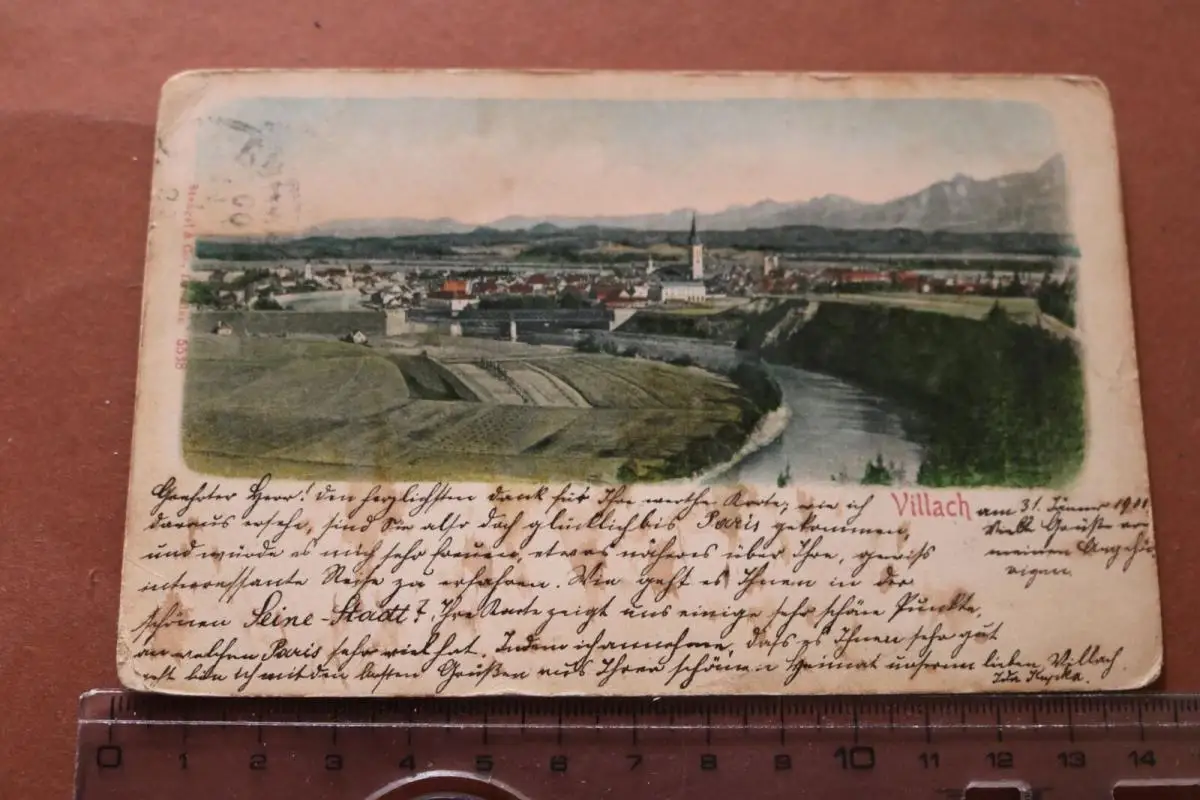 Stengel & Co., 5598
Geehrter Herr! Den herzlichsten Dank für Ihre werthe Karte, wie ich
daraus ersehe, sind Sie also doch glücklich bis Paris gekommen,
und würde es mich sehr freuen, etwas näheres über Ihre, gewiss
interessante Reise zu erfahren. Wie geht es Ihnen in der
schönen Seine-Stadt? Ihre Karte zeigt uns einige sehr schöne Punkte,
an welchen Paris sehr viel hat. Indem ich annehme, dass es Ihnen sehr gut
geht bin ich mit den besten Grüßen aus Ihrer schönen Heimat unserm lieben Villach
Ida
Villach
am 31. Jänner 1901
Viele Grüße von
meinen Angehö-
rigen.
0 1 2 3 4 5 6 7 8 9 10 11 12 13 14